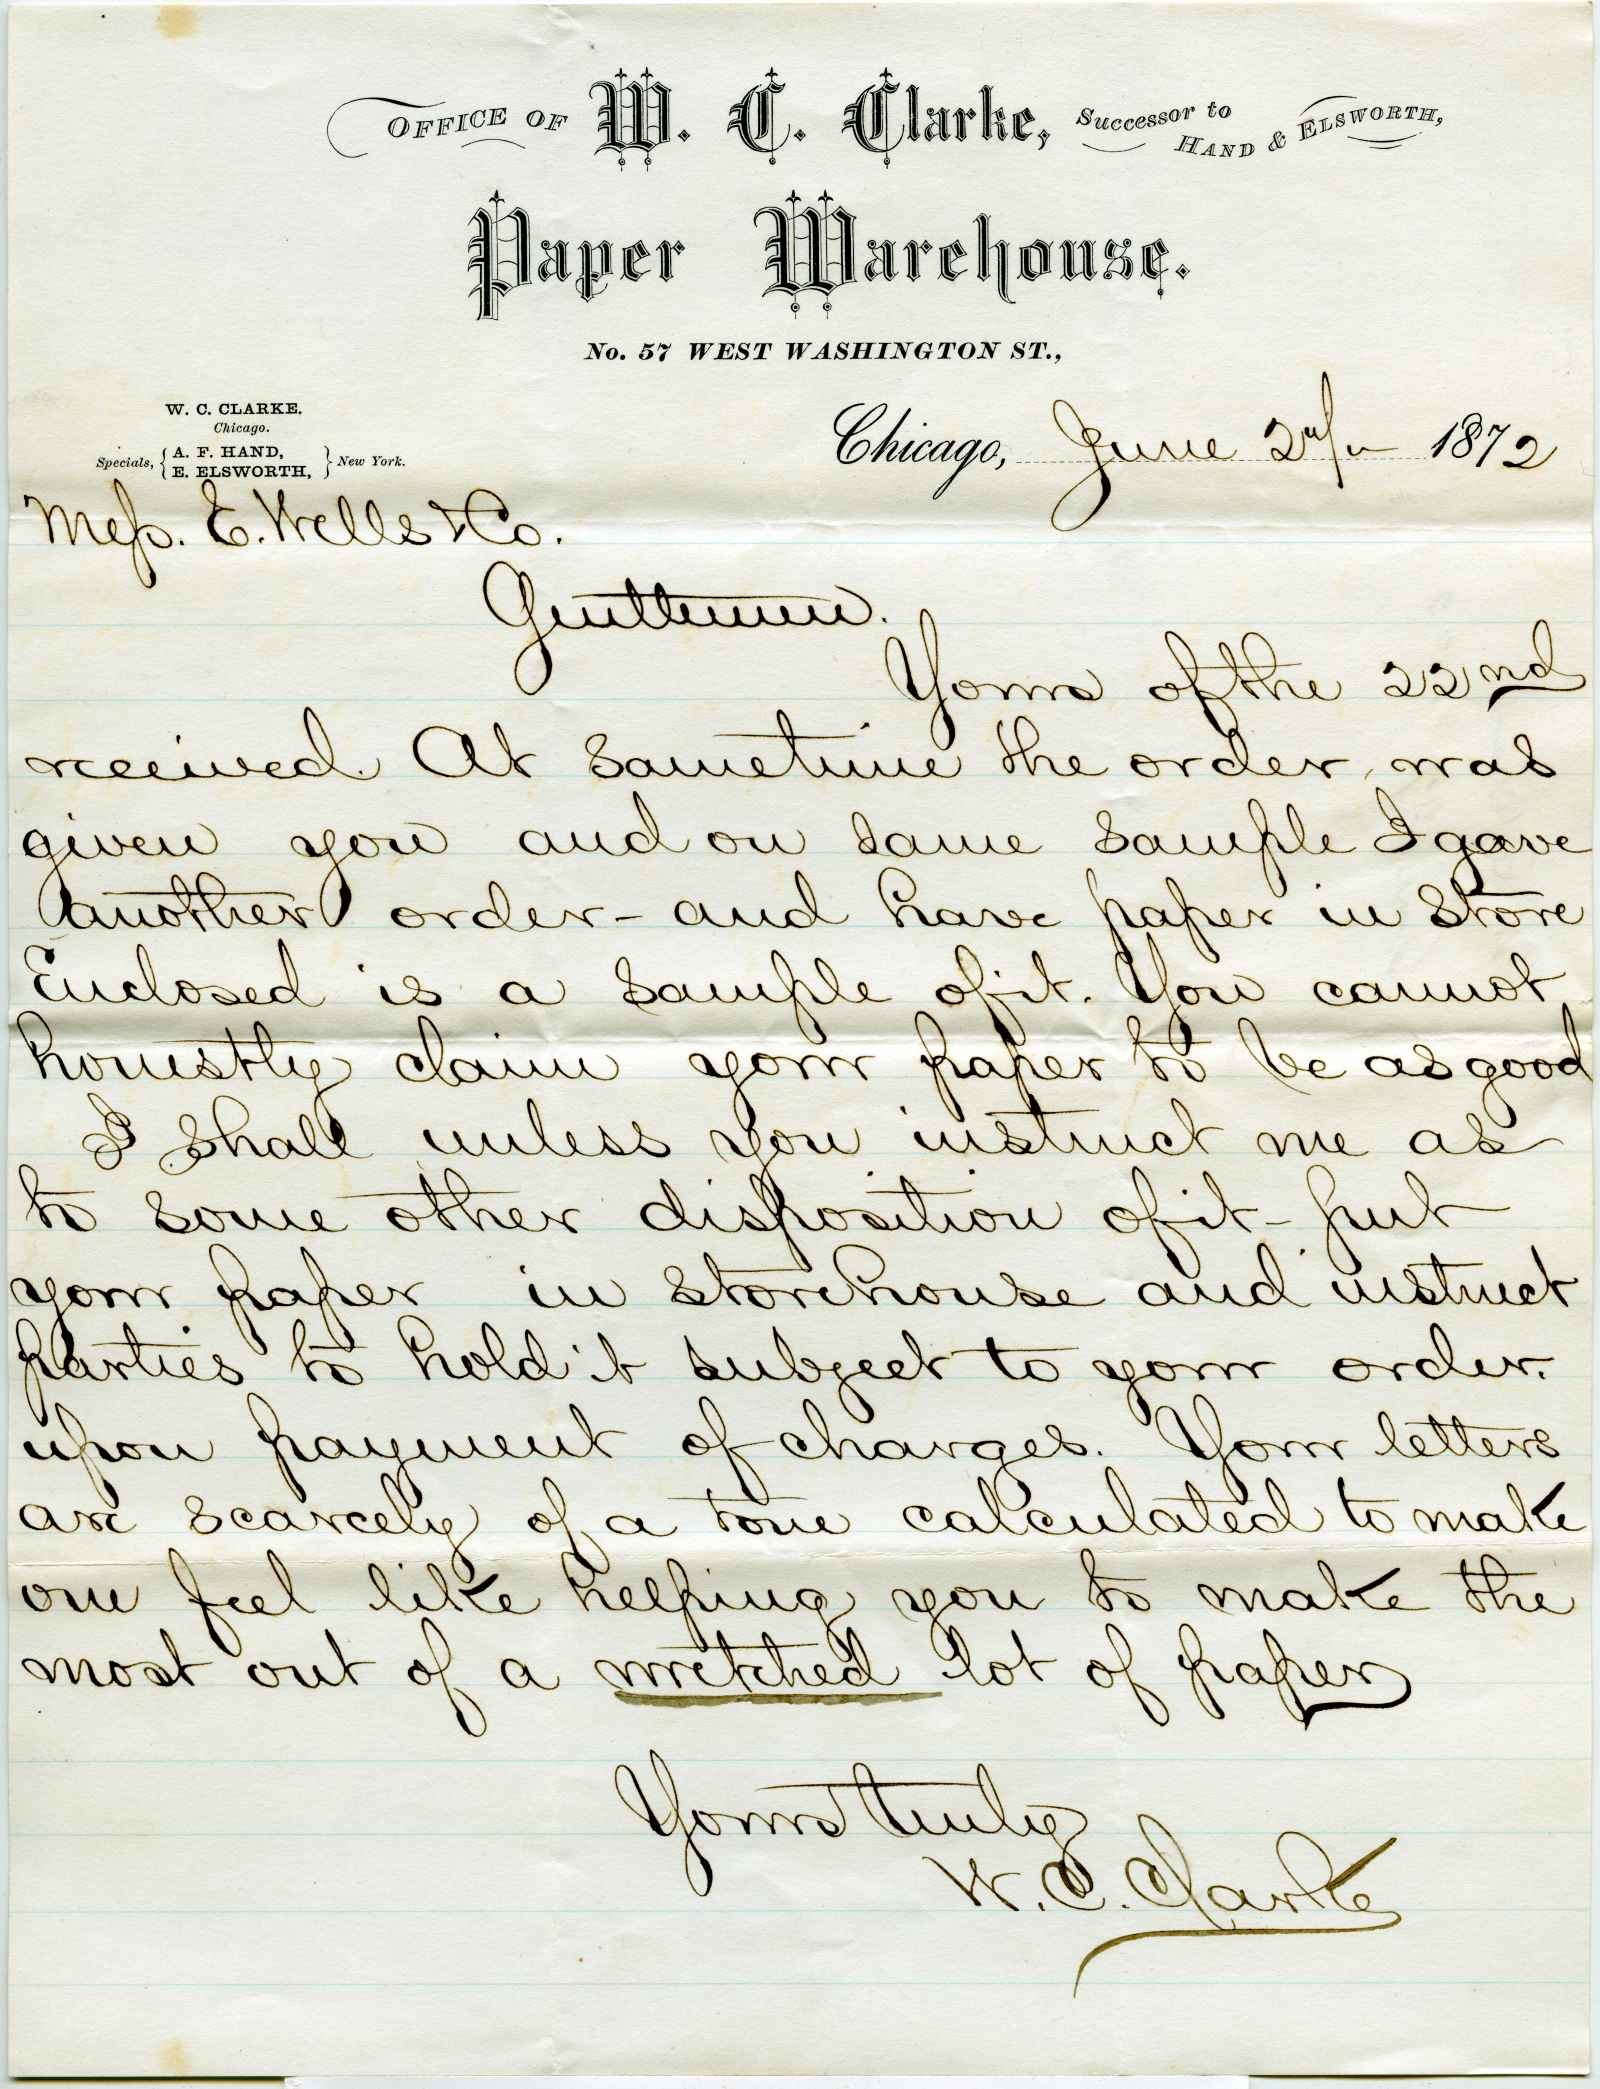 OFFICE OF W. C. Clarke, Successor to HAND & ELSWORTH,
Paper Warehouse.
No. 57 WEST WASHINGTON ST.,
W. C. CLARKE.
Chicago.
Specials, { A. F. HAND, E. ELSWORTH, } New York.
Chicago, June 1872
Mess. E. Wells & Co.
Gentlemen.
Yours of the 22nd
received. At sametime the order was
given you and on same sample I gave
another order - and have paper in store
Enclosed is a sample of it. You cannot
honestly claim your paper to be as good
I shall unless you instruct me as
to some other disposition of it - put
your paper in storehouse and instruct
parties to hold it subject to your order.
upon payment of charges. Your letters
are scarcely of a tone calculated to make
one feel like helping you to make the
most out of a wretched lot of paper
Yours truly
W. C. Clarke